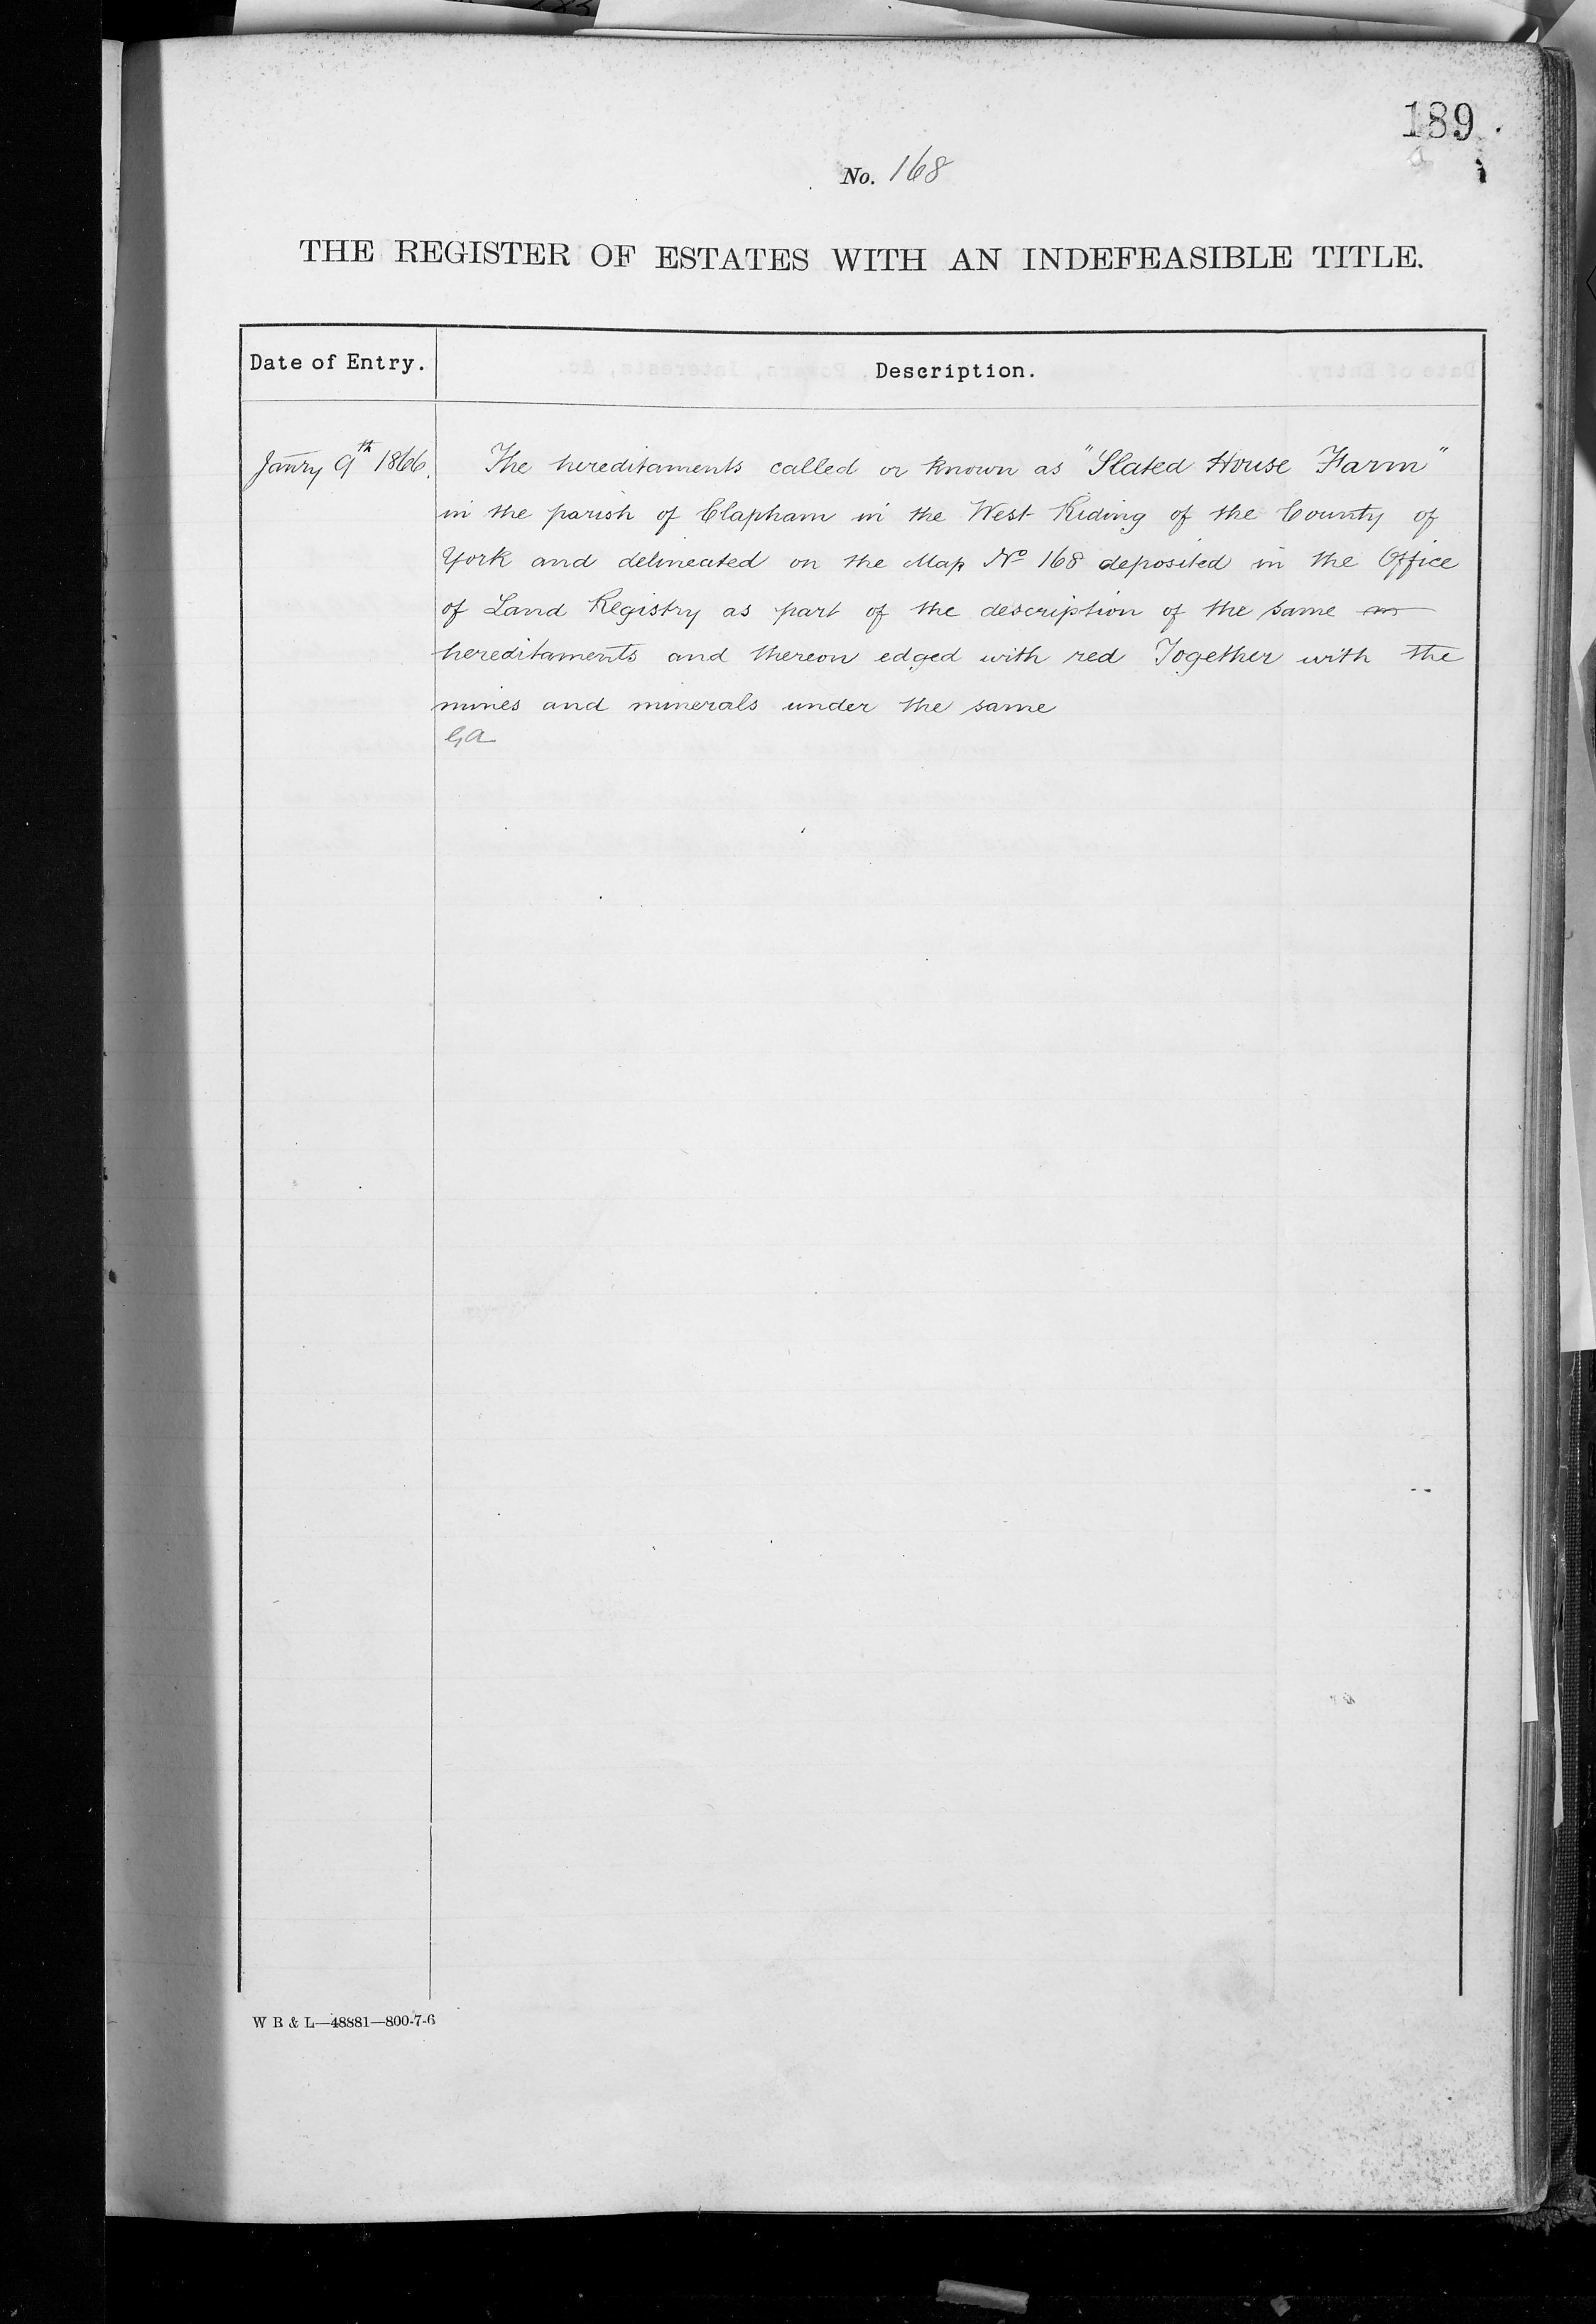 189
No. 168
THE REGISTER OF ESTATES WITH AN INDEFEASIBLE TITLE.
Date of Entry.
Description.
Janry 9th 1866.
The hereditaments called or known as "Slated House Farm"
in the parish of Clapham in the West Riding of the County of
York and delineated on the Map No 168 deposited in the Office
of Land Registry as part of the description of the same
hereditaments and thereon edged with red Together with the
mines and minerals under the same
W B & L—48881—800-7-6